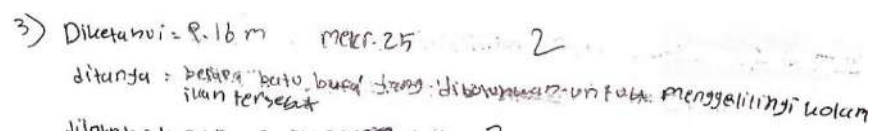 3) Diketahui = P. 16 m mekr. 25 2
ditanya = berapa batu bata yang dibutuhkan untuk menggelilingi kolam
ikan tersebut